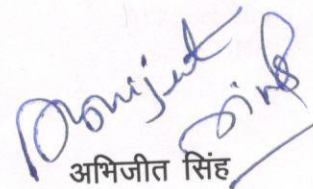 Abhijeet Singh
अभिजीत सिंह